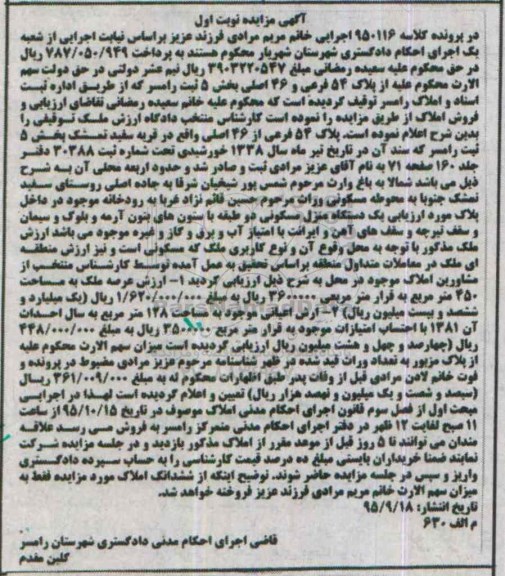 آگهی مزایده نوبت اول
در پرونده کلاسه ۹۵۰۱۱۶ اجرایی خانم مریم مرادی فرزند عزیز براساس نیابت اجرایی از شعبه
یک اجرای احکام دادگستری شهرستان شهریار محکوم هستند به پرداخت ۷۸۷/۰۵۰/۹۴۹ ریال
در حق محکوم علیه سعیده رمضانی مبلغ ۳۹۰۳۲۲۰۵۴۷ ریال نیم عشر دولتی در حق دولت سهم
الارث محکوم علیه از پلاک ۵۴ فرعی و ۴۶ اصلی بخش ۵ ثبت رامسر که از طریق اداره ثبت
اسناد و املاک رامسر توقیف گردیده است که محکوم علیه خانم سعیده رمضانی تقاضای ارزیابی و
فروش املاک از طریق مزایده را نموده است کارشناس منتخب دادگاه ارزش ملک توقیفی را
بدین شرح اعلام نموده است. پلاک ۵۴ فرعی از ۴۶ اصلی واقع در قریه سفید تمشک بخش ۵
ثبت رامسر که سند آن در تاریخ تیر ماه سال ۱۳۳۸ خورشیدی تحت شماره ثبت ۳۰۳۸۸ دفتر
جلد ۱۶۰ صفحه ۷۱ به نام آقای عزیز مرادی ثبت و صادر شد و حدود اربعه محلی آن به شرح
ذیل می باشد شمالا به باغ وارث مرحوم شمسی پور شیخیان شرقا به جاده اصلی روستای سفید
تمشک جنوبا به محوطه مسکونی وراث مرحوم حسین قائم نژاد غربا به رودخانه موجود در داخل
پلاک مورد ارزیابی یک دستگاه منزل مسکونی دو طبقه با ستون های بتون آرمه و بلوک و سیمان
و سقف تیرچه و سقف های آهن و ایرانت با امتیاز آب و برق و گاز و غیره موجود می باشد ارزش
ملک مذکور با توجه به محل وقوع آن و نوع کاربری ملک که مسکونی است و نیز ارزش منطقه
ای ملک در معاملات متداول منطقه براساس تحقیق به عمل آمده توسط کارشناس منتخب از
مشاورین املاک موجود در محل به شرح ذیل ارزیابی گردید ۱- ارزش عرصه ملک به مساحت
۴۵۰ متر مربع به قرار متر مربعی ۳۶۰۰۰۰۰ ریال به مبلغ ۱/۶۲۰/۰۰۰/۰۰۰ ریال (یک میلیارد و
ششصد و بیست میلیون ریال) ۲- ارزش اعیانی موجود به مساحت ۱۲۸ متر مربع به سال احداث
آن ۱۳۸۱ با احتساب امتیازات موجود به قرار متر مربع ۳۵۰۰۰۰۰ ریال به مبلغ ۴۴۸/۰۰۰/۰۰۰
ریال (چهارصد و چهل و هشت میلیون ریال ارزیابی گردیده است میزان سهم الارث محکوم علیه
از پلاک مزبور به تعداد وراث قید شده در ظهر شناسنامه مرحوم عزیز مرادی مضبوط در پرونده و
فوت خانم لادن مرادی قبل از وفات پدر طبق اظهارات محکوم له به مبلغ ۳۶۱/۰۰۹/۰۰۰ ریال
(سیصد و شصت و یک میلیون و نهصد هزار ریال) تعیین و اعلام گردیده است لهذا در اجرایی
مبحث اول از فصل سوم قانون اجرای احکام مدنی املاک موصوف در تاریخ ۹۵/۱۰/۱۵ از ساعت
۱۱ صبح لغایت ۱۲ ظهر در دفتر اجرای احکام مدنی متمرکز رامسر به فروش می رسد علاقه
مندان می توانند تا ۵ روز قبل از موعد مقرر از املاک مذکور بازدید و در جلسه مزایده شرکت
نمایند ضمنا خریداران بایستی مبلغ ده درصد قیمت کارشناسی را به حساب سپرده دادگستری
واریز و سپس در جلسه مزایده حاضر شوند. توضیح اینکه از ششدانگ املاک مورد مزایده فقط به
میزان سهم الارث خانم مریم مرادی فرزند عزیز فروخته خواهد شد.
تاریخ انتشار: ۹۵/۹/۱۸
م الف ۶۳۰
قاضی اجرای احکام مدنی دادگستری شهرستان رامسر
گلین مقدم